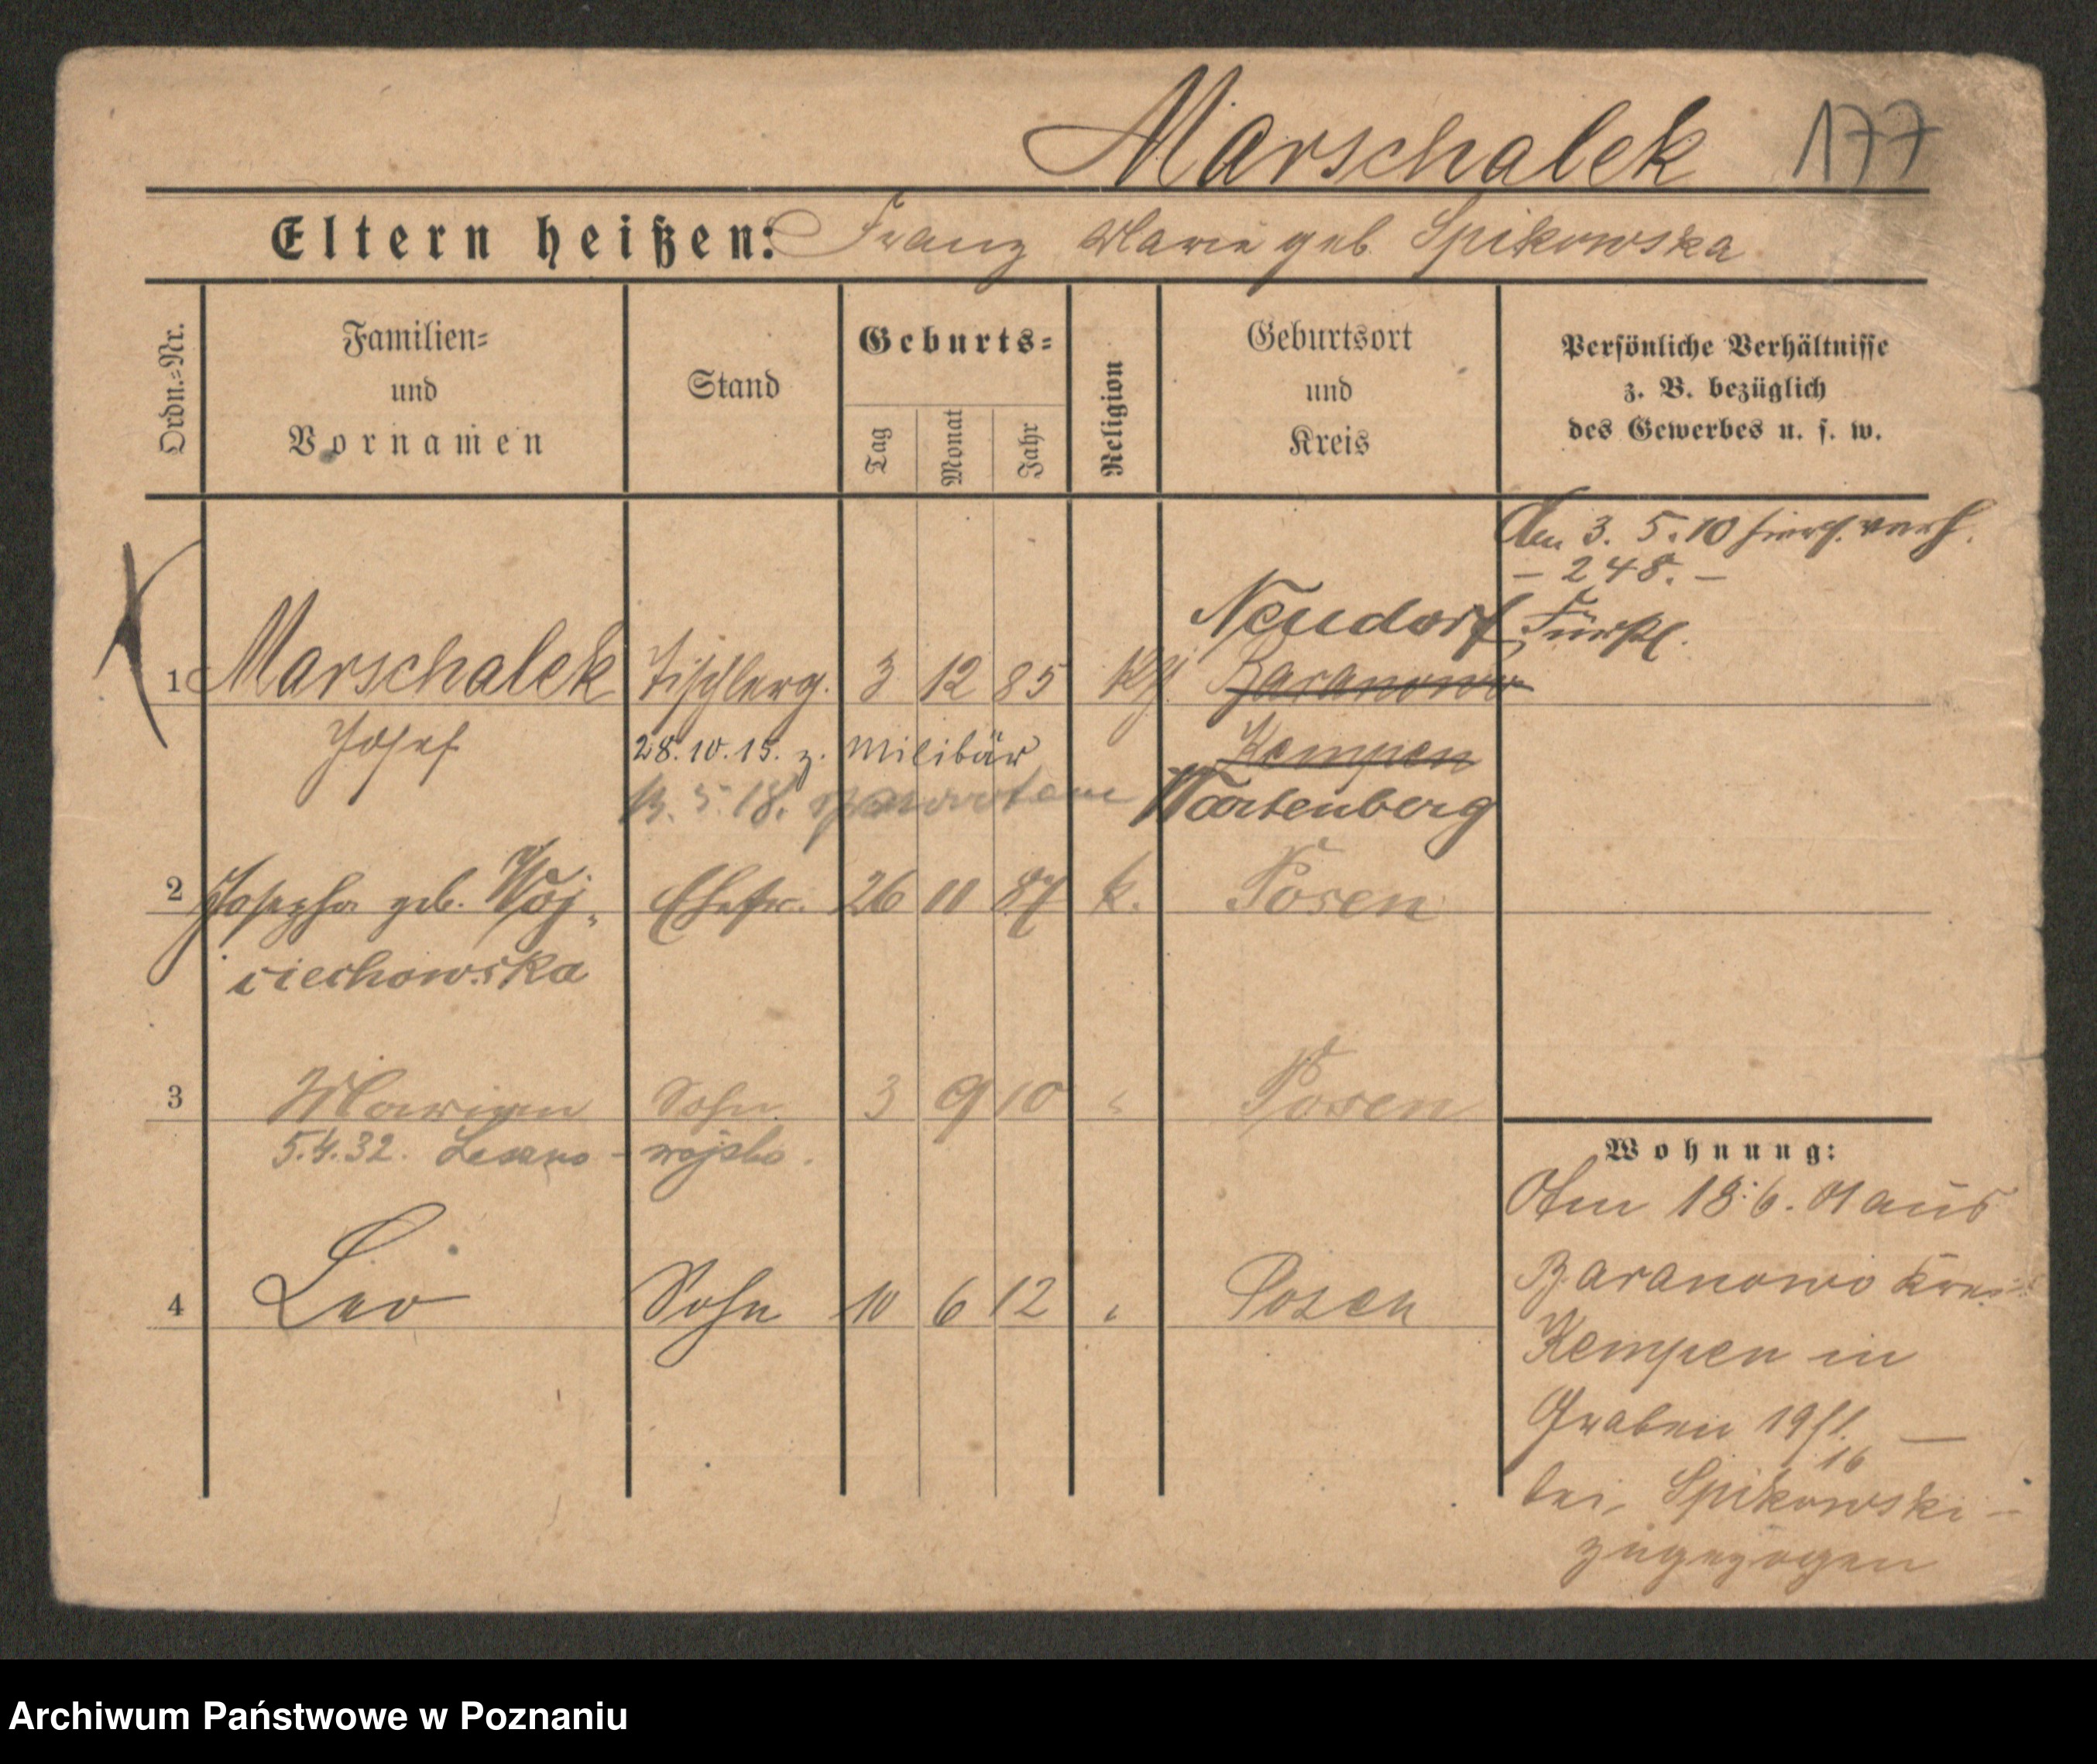 Marschalek 177
Eltern heißen: Franz Marie geb. Spikowska
Ordn.=Nr.
Familien=
und
Vornamen
Stand
Geburts=
Tag
Monat
Jahr
Religion
Geburtsort
und
Kreis
Persönliche Verhältnisse
z. B. bezüglich
des Gewerbes u. s. w.
den 3. 5. 10 hiers. verh.
– 248. –
Neudorf Fürstl.
1 Marschalek Tischlerg. 3 12 85 Kth. Baranowo
Josef 28.10.15. z. Militär Kempen
5. 18. powrotem Wartenberg
2 Josepha geb. Woj= Ehefr. 26 11 87 k. Posen
ciechowska
3 Marian Sohn 3 9 10 " Posen
5.4.32. Leszno - wojsko.
4 Leo Sohn 10 6 12 " Posen
Wohnung:
Am 18.6. 01 aus
Baranowo Kreis
Kempen in
Graben 19
16
bei Spikowski –
zugezogen
Archiwum Państwowe w Poznaniu